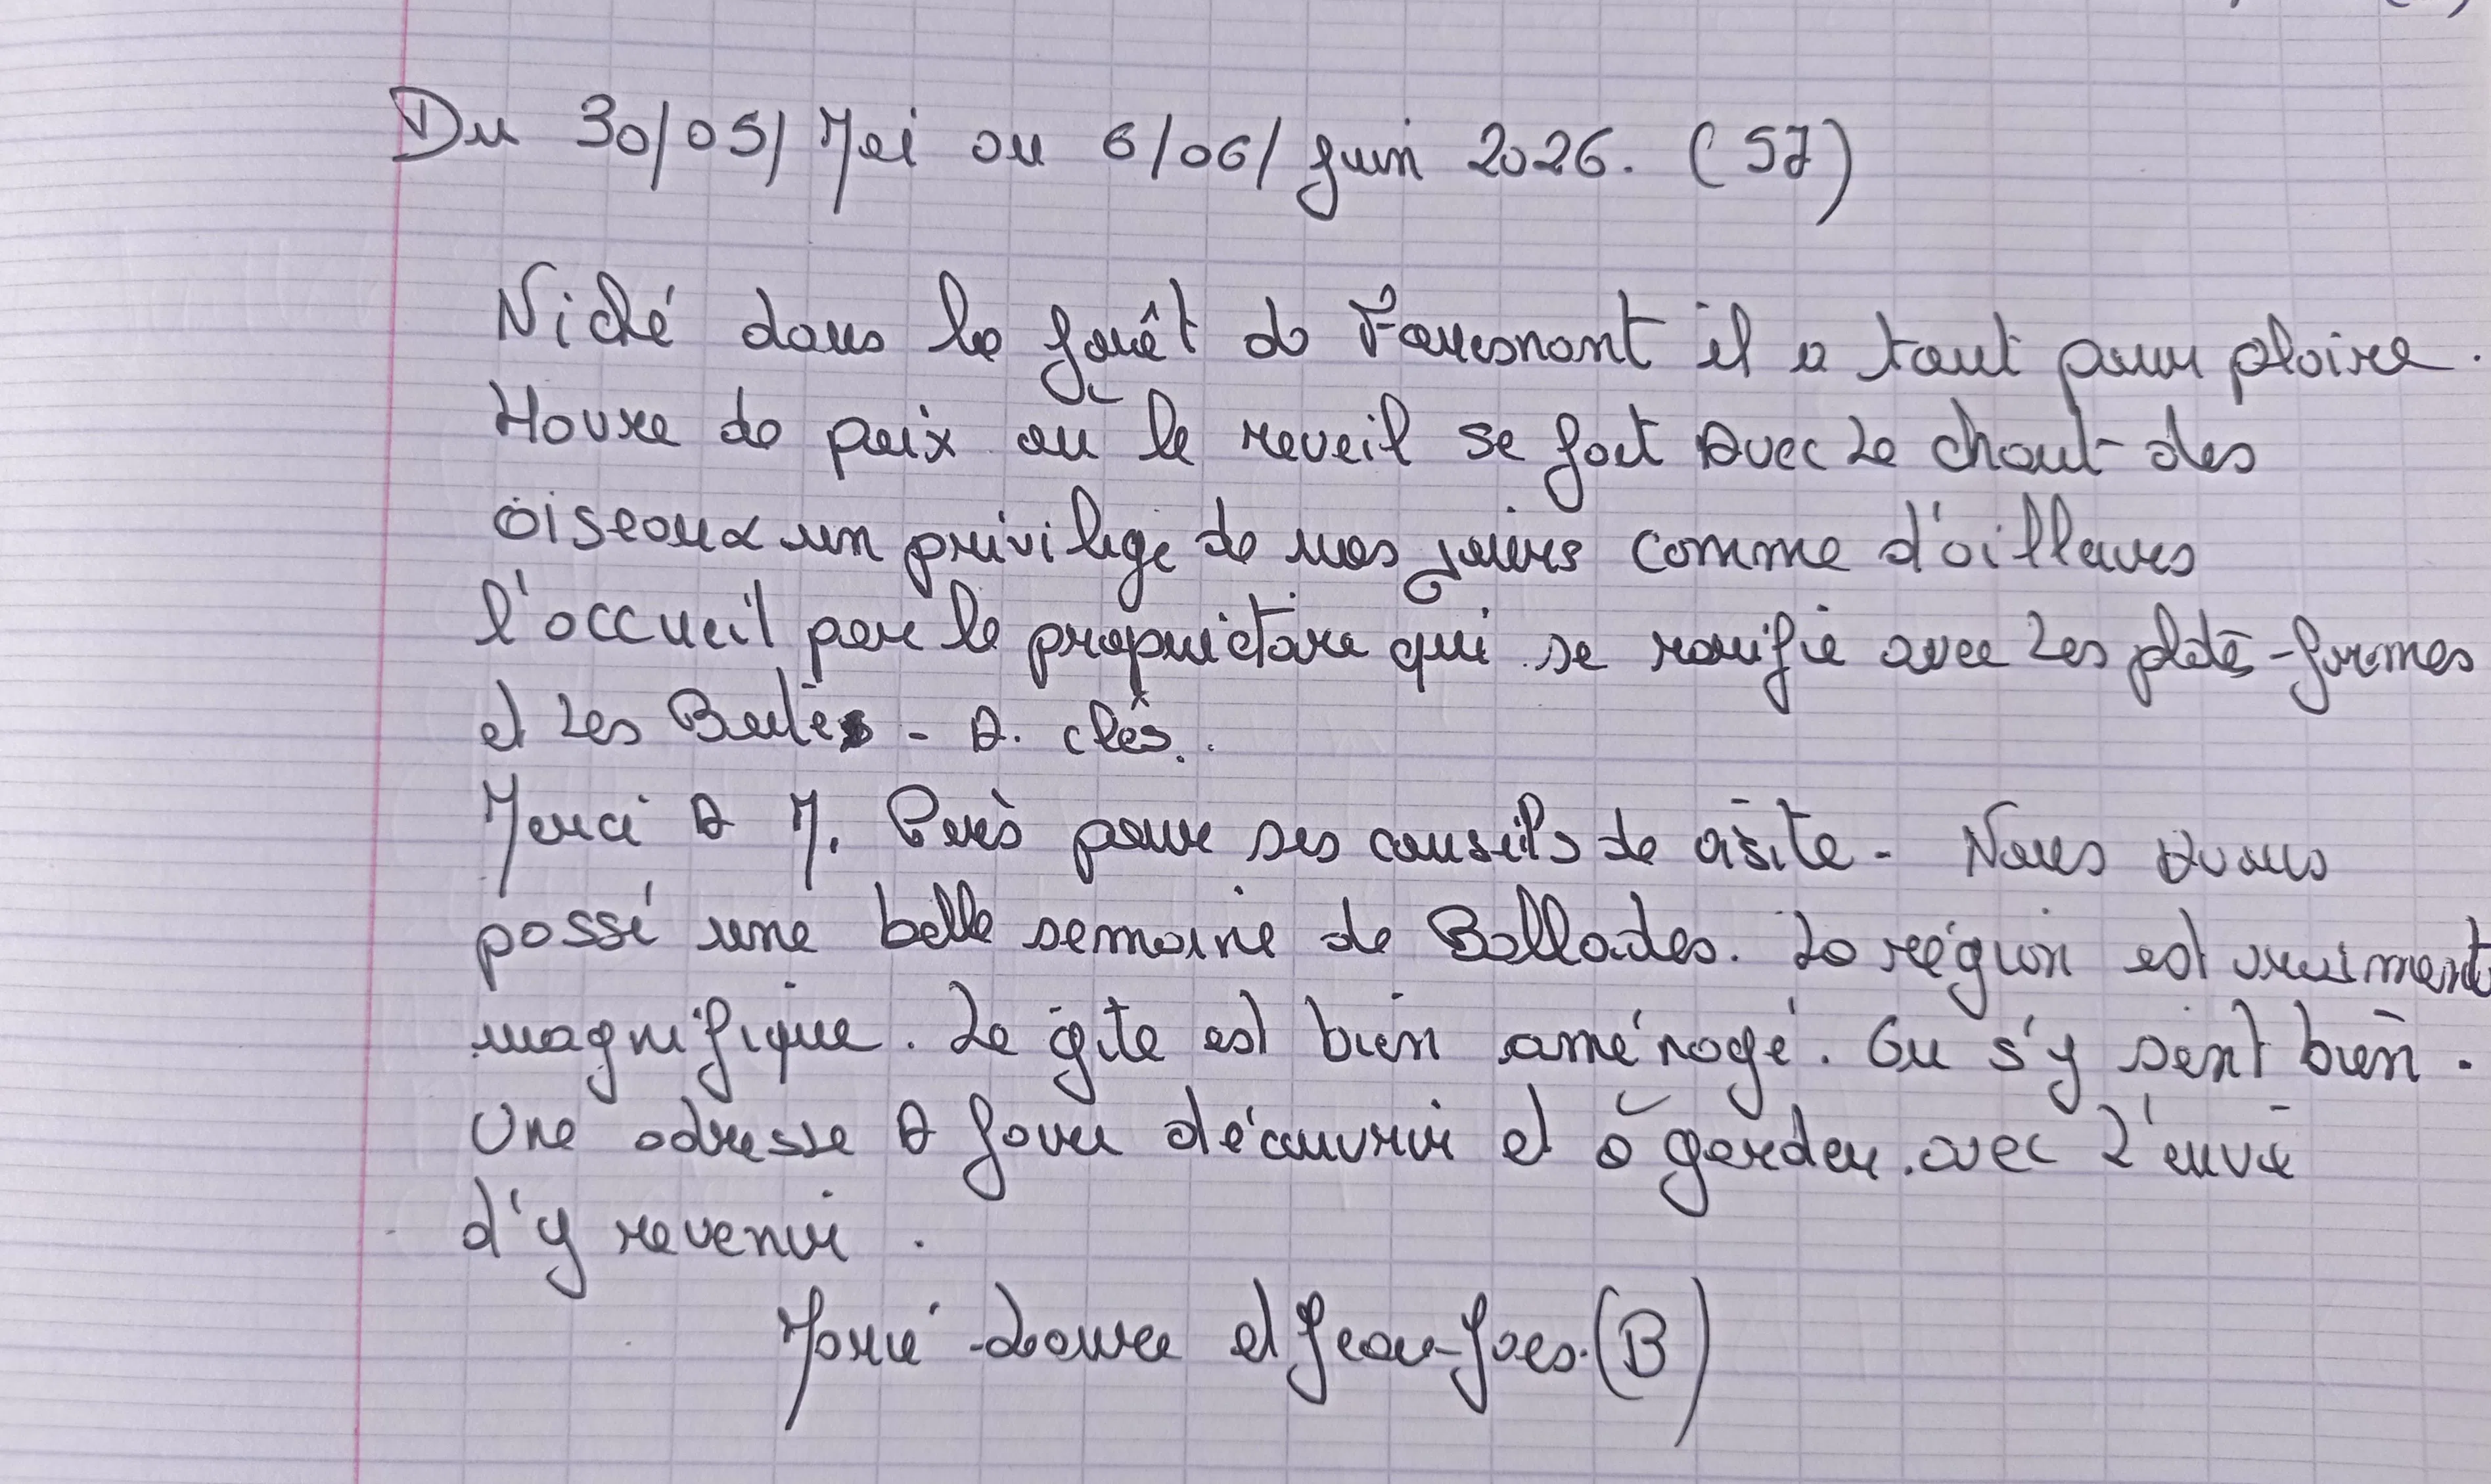 Du 30/05/ Mai au 6/06/ Juin 2026. (57)
Niché dans la forêt de il a tout pour plaire.
Havre de paix où le reveil se fait avec le chant des
oiseaux un privilège de nos jours comme d'ailleurs
l'accueil par le propriétaire qui se rarifie avec les plate-formes
et les Boîtes - à. clés.
Merci à M. pour ses conseils de visite - Nous avons
passé une belle semaine de Ballades. La région est vraiment
magnifique. Le gîte est bien aménagé. On s'y sent bien.
Une adresse à faire découvrir et à garder. avec l'envie
d'y revenir.
Marie-Laure et Jean-Yves. (B)